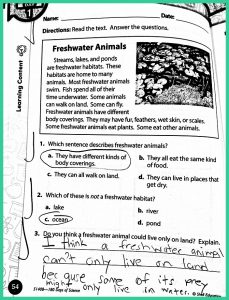 1
Name:
Date:
Directions: Read the text. Answer the questions.
Learning Content
Freshwater Animals
Streams, lakes, and ponds
are freshwater habitats. These
habitats are home to many
animals. Most freshwater animals
swim. Fish spend all of their
time underwater. Some animals
can walk on land. Some can fly.
Freshwater animals have different
body coverings. They may have fur, feathers, wet skin, or scales.
Some freshwater animals eat plants. Some eat other animals.
1. Which sentence describes freshwater animals?
a. They have different kinds of
body coverings.
b. They all eat the same kind
of food.
c. They can all walk on land.
d. They can live in places that
get dry.
2. Which of these is not a freshwater habitat?
a. lake
b. river
c. ocean
d. pond
3. Do you think a freshwater animal could live only on land? Explain.
I think a freshwater animal
can't only live on land
becquse some of its prey
might only live in water.
54
51409—180 Days of Science
© Shell Education